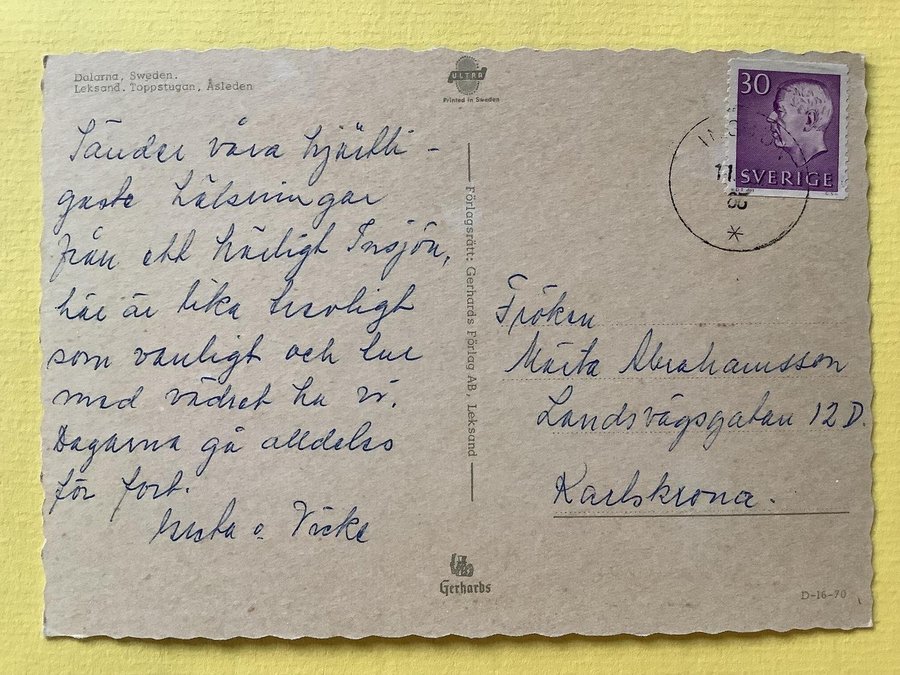 Dalarna, Sweden.
Leksand. Toppstugan, Åsleden
ULTRA
Printed in Sweden
30
SVERIGE
11
Sänder våra hjärtli-
gaste hälsningar
från ett härligt Insjön,
här är lika trevligt
som vanligt och tur
med vädret ha vi.
Dagarna gå alldeles
för fort.
o Vicke
Förlagsrätt: Gerhards Förlag AB, Leksand
Fröken
Märta Abrahamsson
Landsvägsgatan 12 D.
Karlskrona.
Gerhards
D-16-70